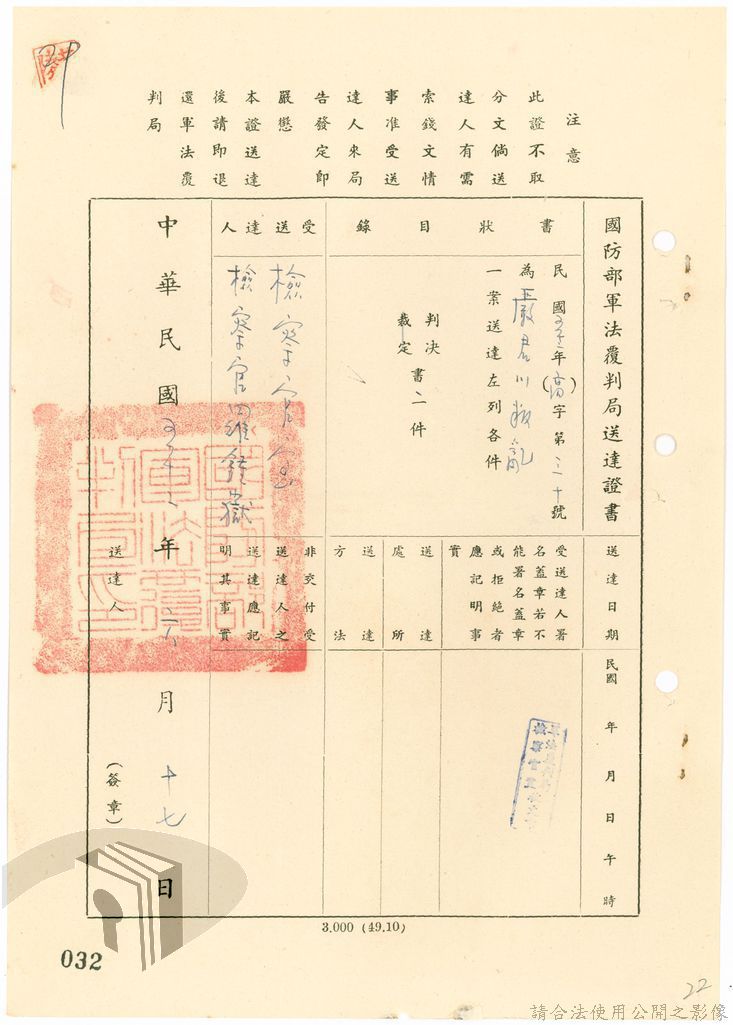 注意
此證不取
分文倘送
達人有需
索錢文情
事准受送
達人來局
告發定即
嚴懲
本證送達
後請即退
還軍法覆
判局
國防部軍法覆判局送達證書
書狀目錄
民國年(高)字第三十號
為嚴君川叛亂
一案送達左列各件
判決
裁定
書二件
受送達人
檢察官
檢察官羅鍾嶽
送達日期
民國 年 月 日 午 時
受送達人署
名蓋章若不
能署名蓋章
或拒絕者
應記明事
實
送達處所
送達方法
非交付受
送達人之
送達應記
明其事實
中華民國年六月十七日
送達人
(簽章)
3.000 (49.10)
032
22
請合法使用公開之影像